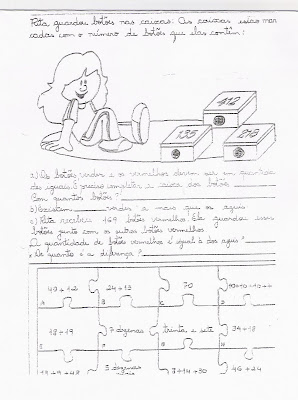 Rita guardou botões nas caixas. As caixas estão mar
cadas com o número de botões que elas contêm:
412
135
218
a) Os botões verdes e os vermelhos devem ser em quantida
des iguais. É preciso completar a caixa dos botões
Com quantos botões?
b) Existem verdes a mais que os azuis
c) Rita recebeu 169 botões vermelhos. Ela guardou esses
botões junto com os outros botões vermelhos
A quantidade de botões vermelhos é igual à dos azuis?
De quanto é a diferença?
49+12
24+13
70
10+10+10+
18+19
7 dezenas
trinta e sete
34+18
+9+48
5 dezenas
7+14+30
46+24